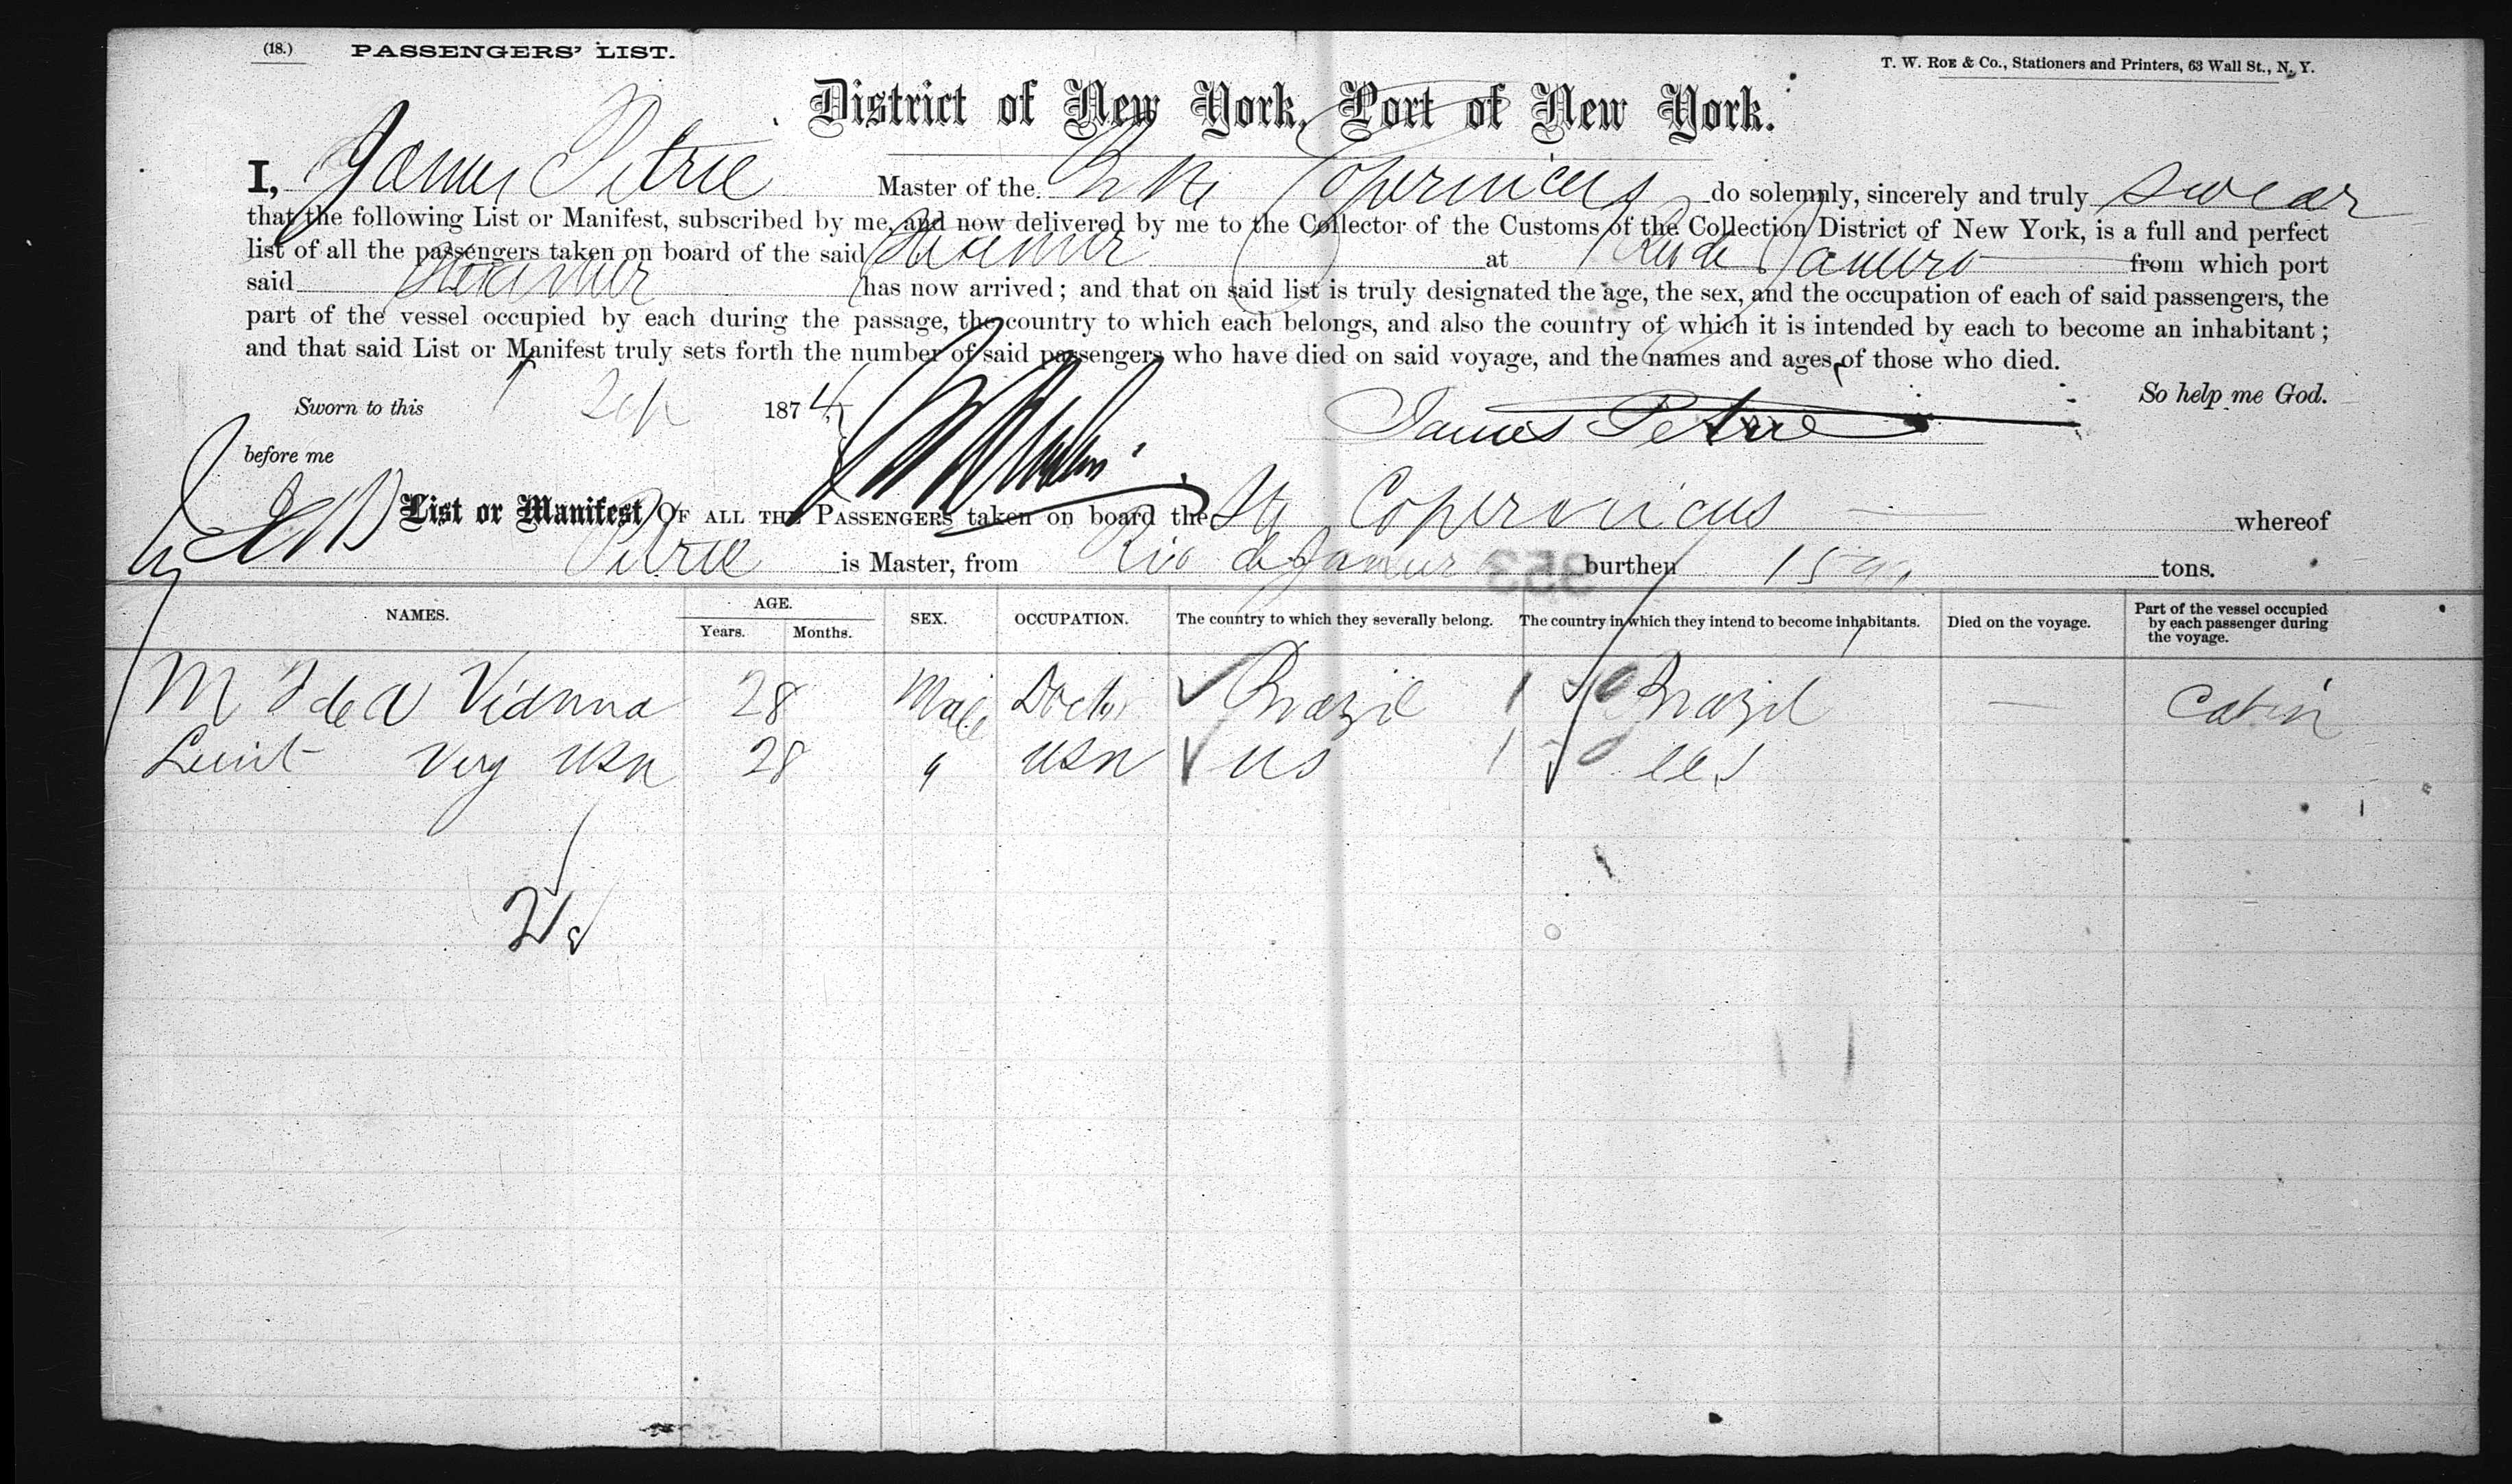 (18.) PASSENGERS' LIST.
T. W. Roe & Co., Stationers and Printers, 63 Wall St., N. Y.
District of New York, Port of New York.
I, James Petrie Master of the Copernicus do solemnly, sincerely and truly swear
that the following List or Manifest, subscribed by me, and now delivered by me to the Collector of the Customs of the Collection District of New York, is a full and perfect
list of all the passengers taken on board of the said Steamer at Rio de Janeiro from which port
said Steamer has now arrived; and that on said list is truly designated the age, the sex, and the occupation of each of said passengers, the
part of the vessel occupied by each during the passage, the country to which each belongs, and also the country of which it is intended by each to become an inhabitant;
and that said List or Manifest truly sets forth the number of said passengers who have died on said voyage, and the names and ages of those who died.
So help me God.
Sworn to this Sep 1874
James Petrie
before me
List or Manifest OF ALL THE PASSENGERS taken on board the Str Copernicus whereof
Petrie is Master, from Rio de Janeiro burthen tons.
NAMES. AGE. SEX. OCCUPATION. The country to which they severally belong. The country in which they intend to become inhabitants. Died on the voyage. Part of the vessel occupied by each passenger during the voyage.
Years. Months.
M de A Vianna 28 Male Doctor Brazil Brazil — Cabin
Leuit Very USN 28 " USN US U.S
2